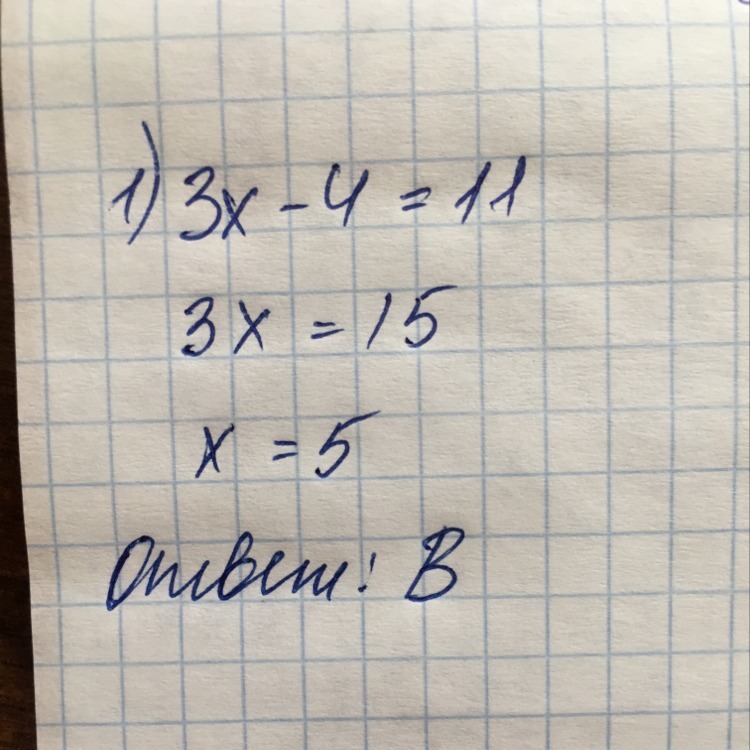 1) 3x - 4 = 11
3x = 15
x = 5
Ответ: В